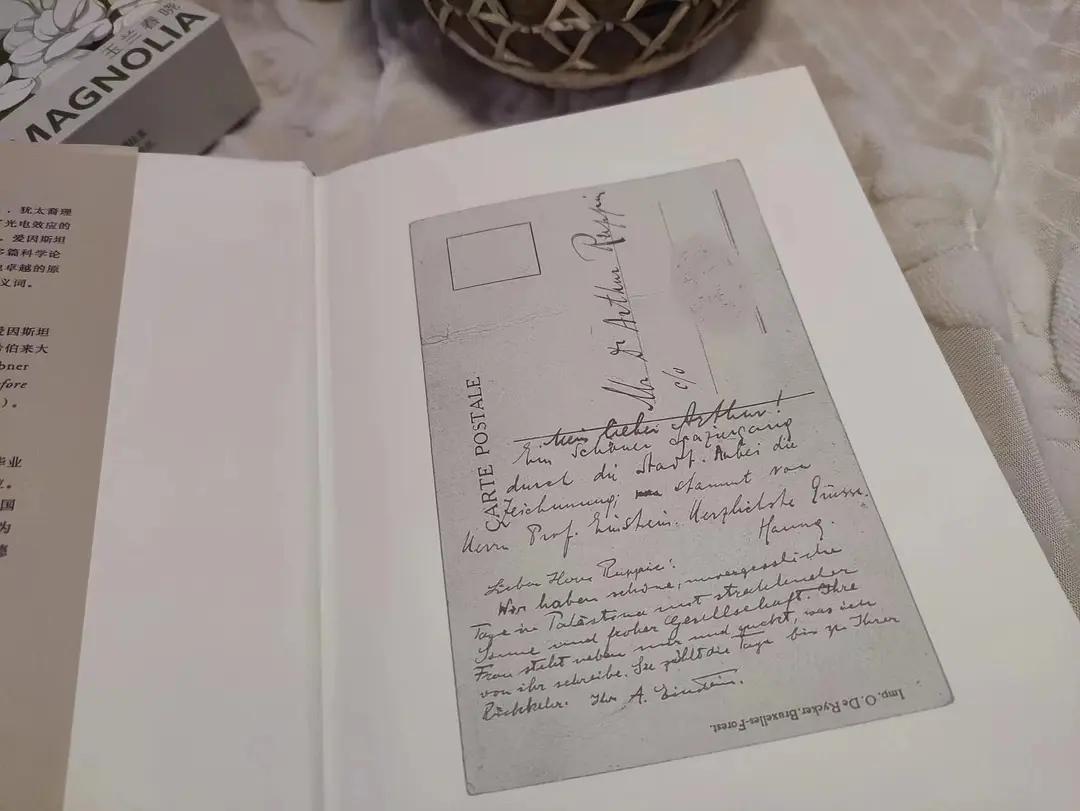 玉兰春晓
MAGNOLIA
，犹太裔理
光电效应的
，爱因斯坦
多篇科学论
卓越的原
义词。
爱因斯坦
伯来大
bner
fore
)。
毕业
国
为
CARTE POSTALE
Dr Arthur Ruppin
c/o
Mein lieber Arthur!
Ein schöner Spaziergang
durch die Stadt. Anbei die
Zeichnung; stammt von
Herrn Prof. Einstein. Herzlichste Grüsse.
Lieber Herr Ruppin!
Wir haben schöne, unvergessliche
Tage in Palästina mit strahlender
Sonne und froher Gesellschaft. Ihre
Frau steht neben mir und guckt, was ich
von ihr schreibe. Sie zählt die Tage bis zu Ihrer
Rückkehr. Ihr A. Einstein.
Imp. O. De Rycker. Bruxelles-Forest.